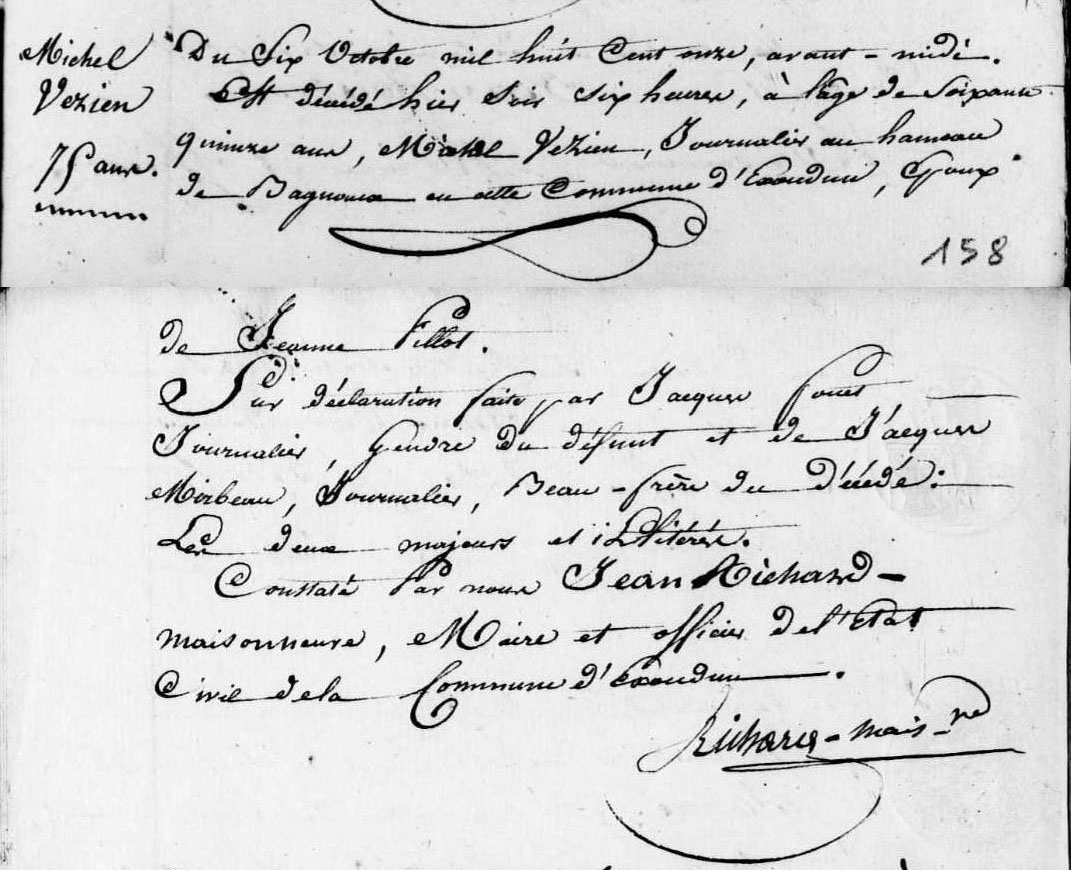 Michel
Vezien
75 ans.
Du Six Octobre mil huit Cent onze, avant-midi.
Est décédé hier soir six heures, à l'age de Soixante
quinze ans, Michel Vezien, Journalier au hameau
de Bagnoux en cette Commune d'Exoudun, Epoux
158
de Jeanne Fillot.
Sur déclaration faite par Jacques
Journalier, Gendre du défunt et de Jacques
Mirbeau, Journalier, Beau-frère du décédé:
Les deux majeurs et illitérés.
Constaté Par nous Jean Richard-
maisonneuve, Maire et officier de l'Etat
Civil dela Commune d'Exoudun.
Richard-mais-ve